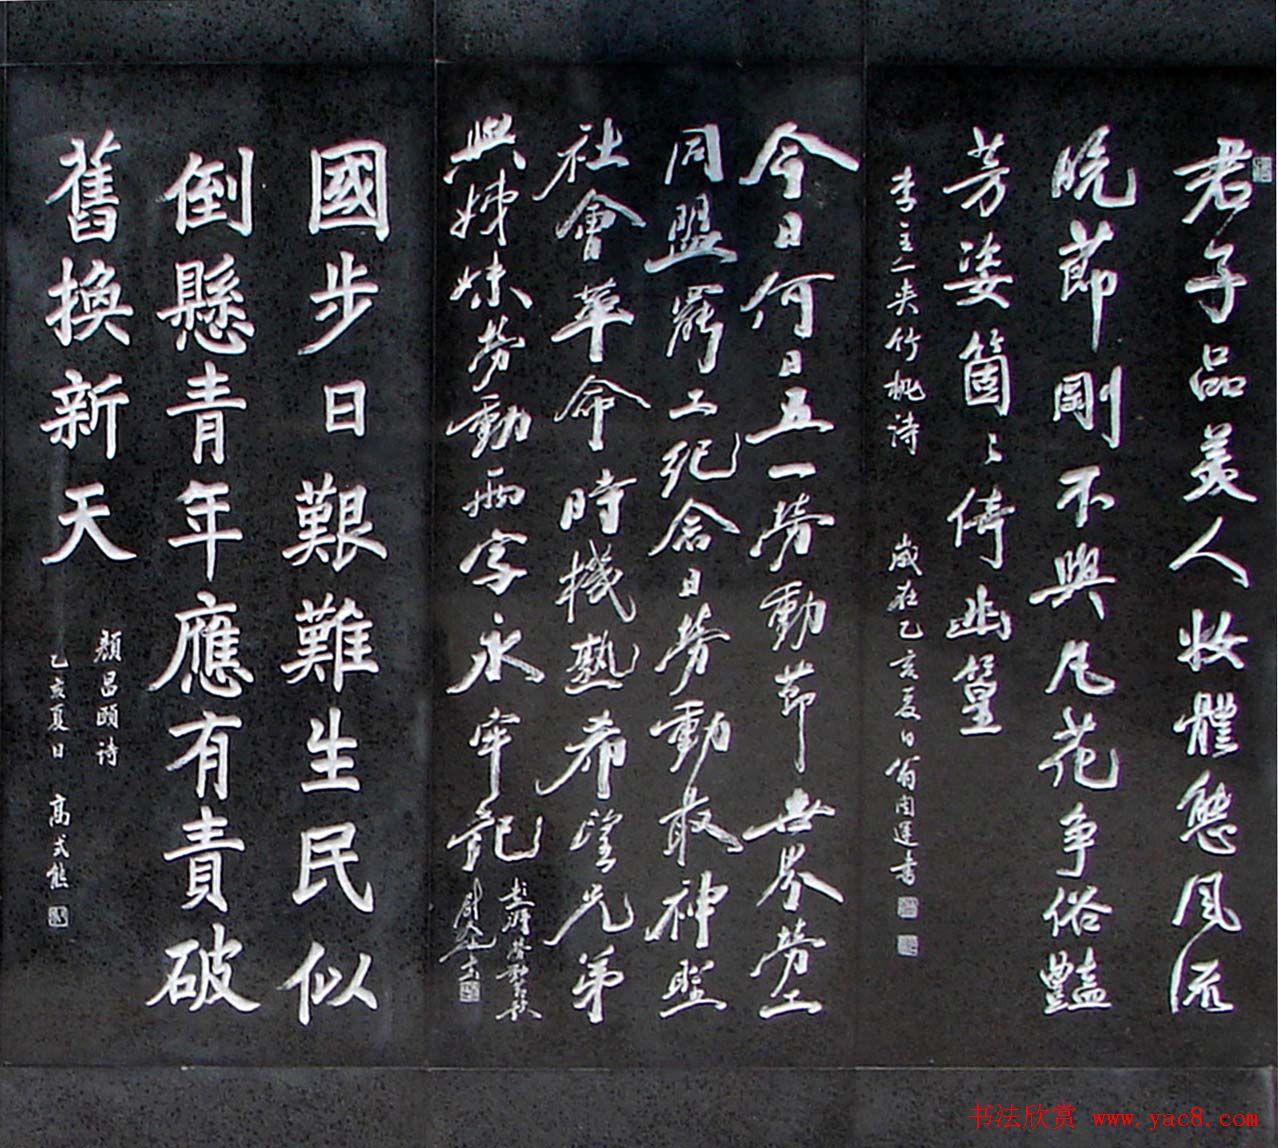 君子品美人妝體態風流
晚節剛不與凡花爭俗豔
芳姿箇〻倚幽篁
李立夾竹桃诗 歲在乙亥夏日翁闿運書
今日何日五一勞動節世界勞工
同盟罷工纪念日勞動最神聖
社會革命時機熟希望兄弟
與姊妹勞動兩字永牢記
彭湃勞動節歌
國步日艱難生民似
倒懸青年應有責破
舊換新天
顏昌頤诗
乙亥夏日 高式熊
书法欣赏 www.yac8.com